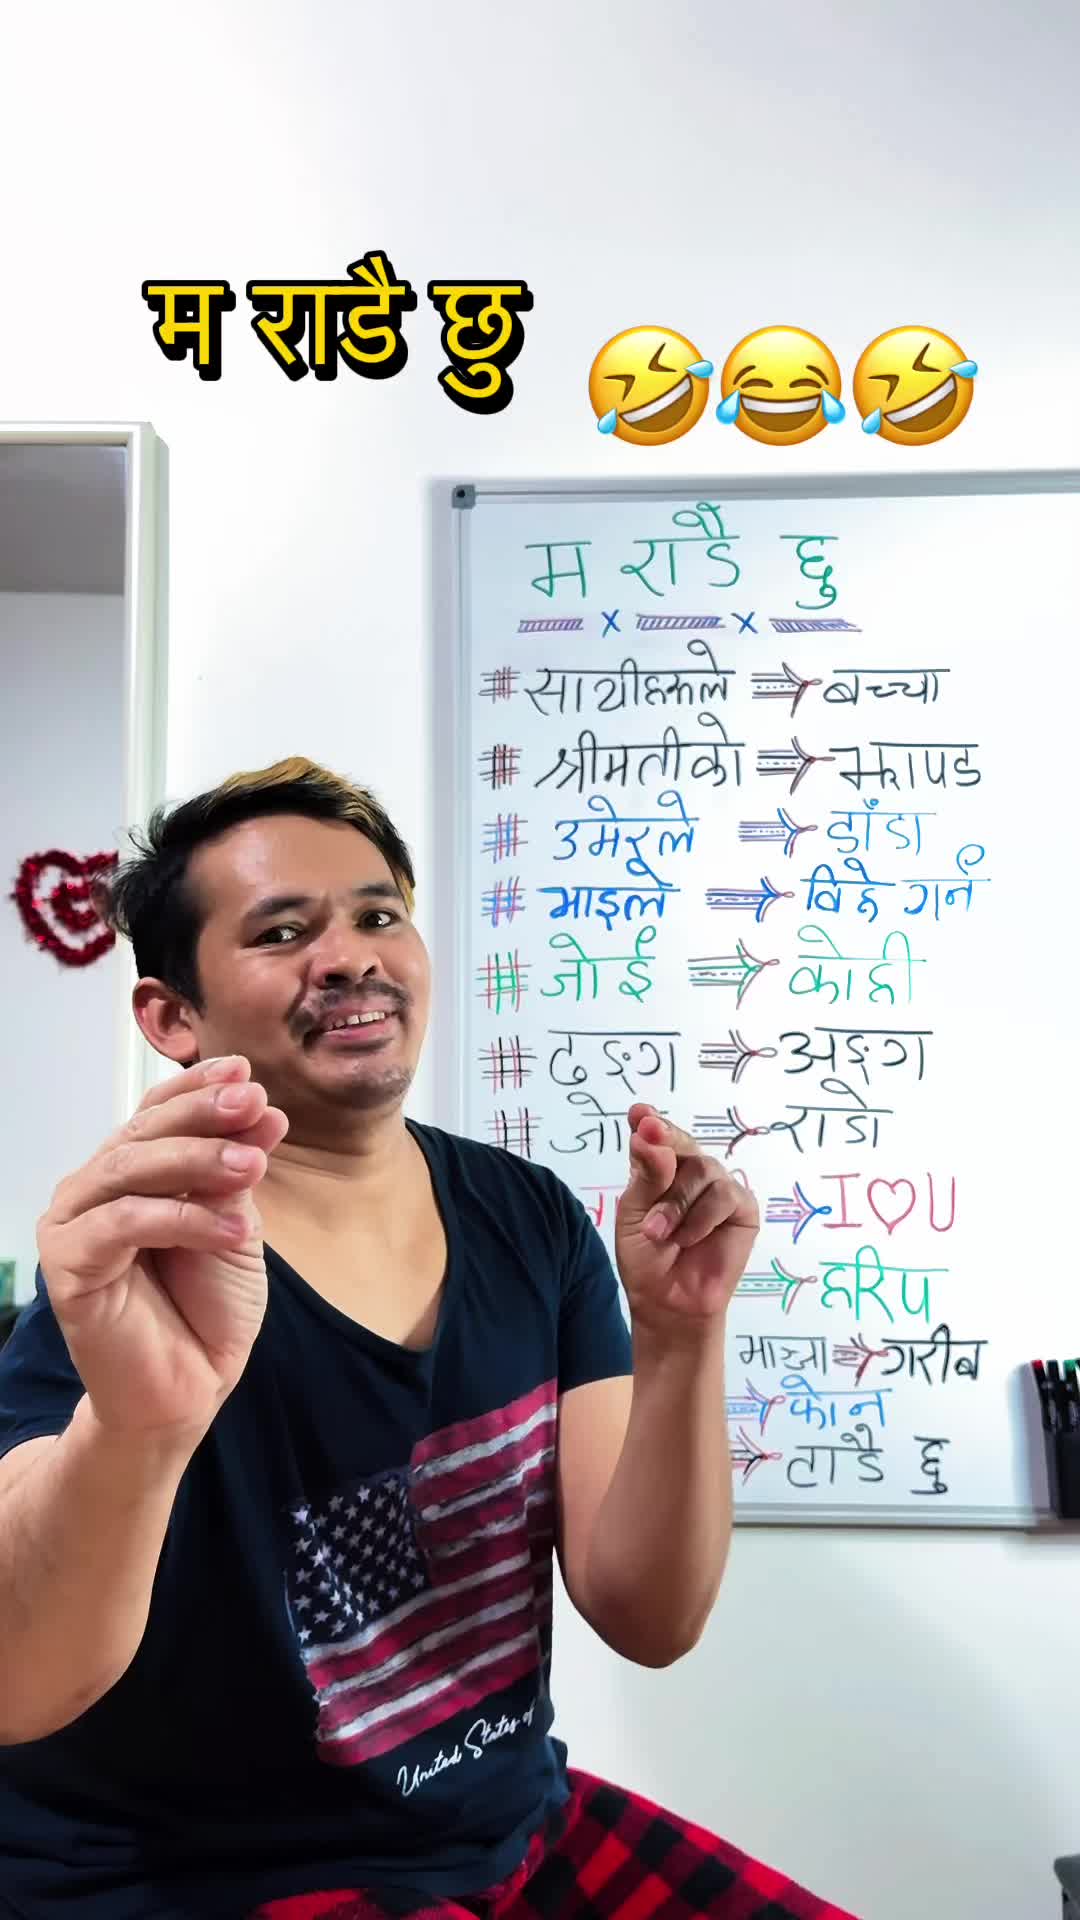 म राडै छु 🤣😂🤣
म राडै छु
x x
# साथीहरूले ⇒ बच्चा
# श्रीमतीको ⇒ झापड
# उमेरले ⇒ डाँडा
# भाइले ⇒ विहे गर्न
# जोई ⇒ कोही
# ढङ्ग ⇒ अङ्ग
# ⇒ राडो
⇒ I ♡ U
⇒ हरिप
⇒ गरीब
⇒ फोन
⇒ टाडै छु
United States of